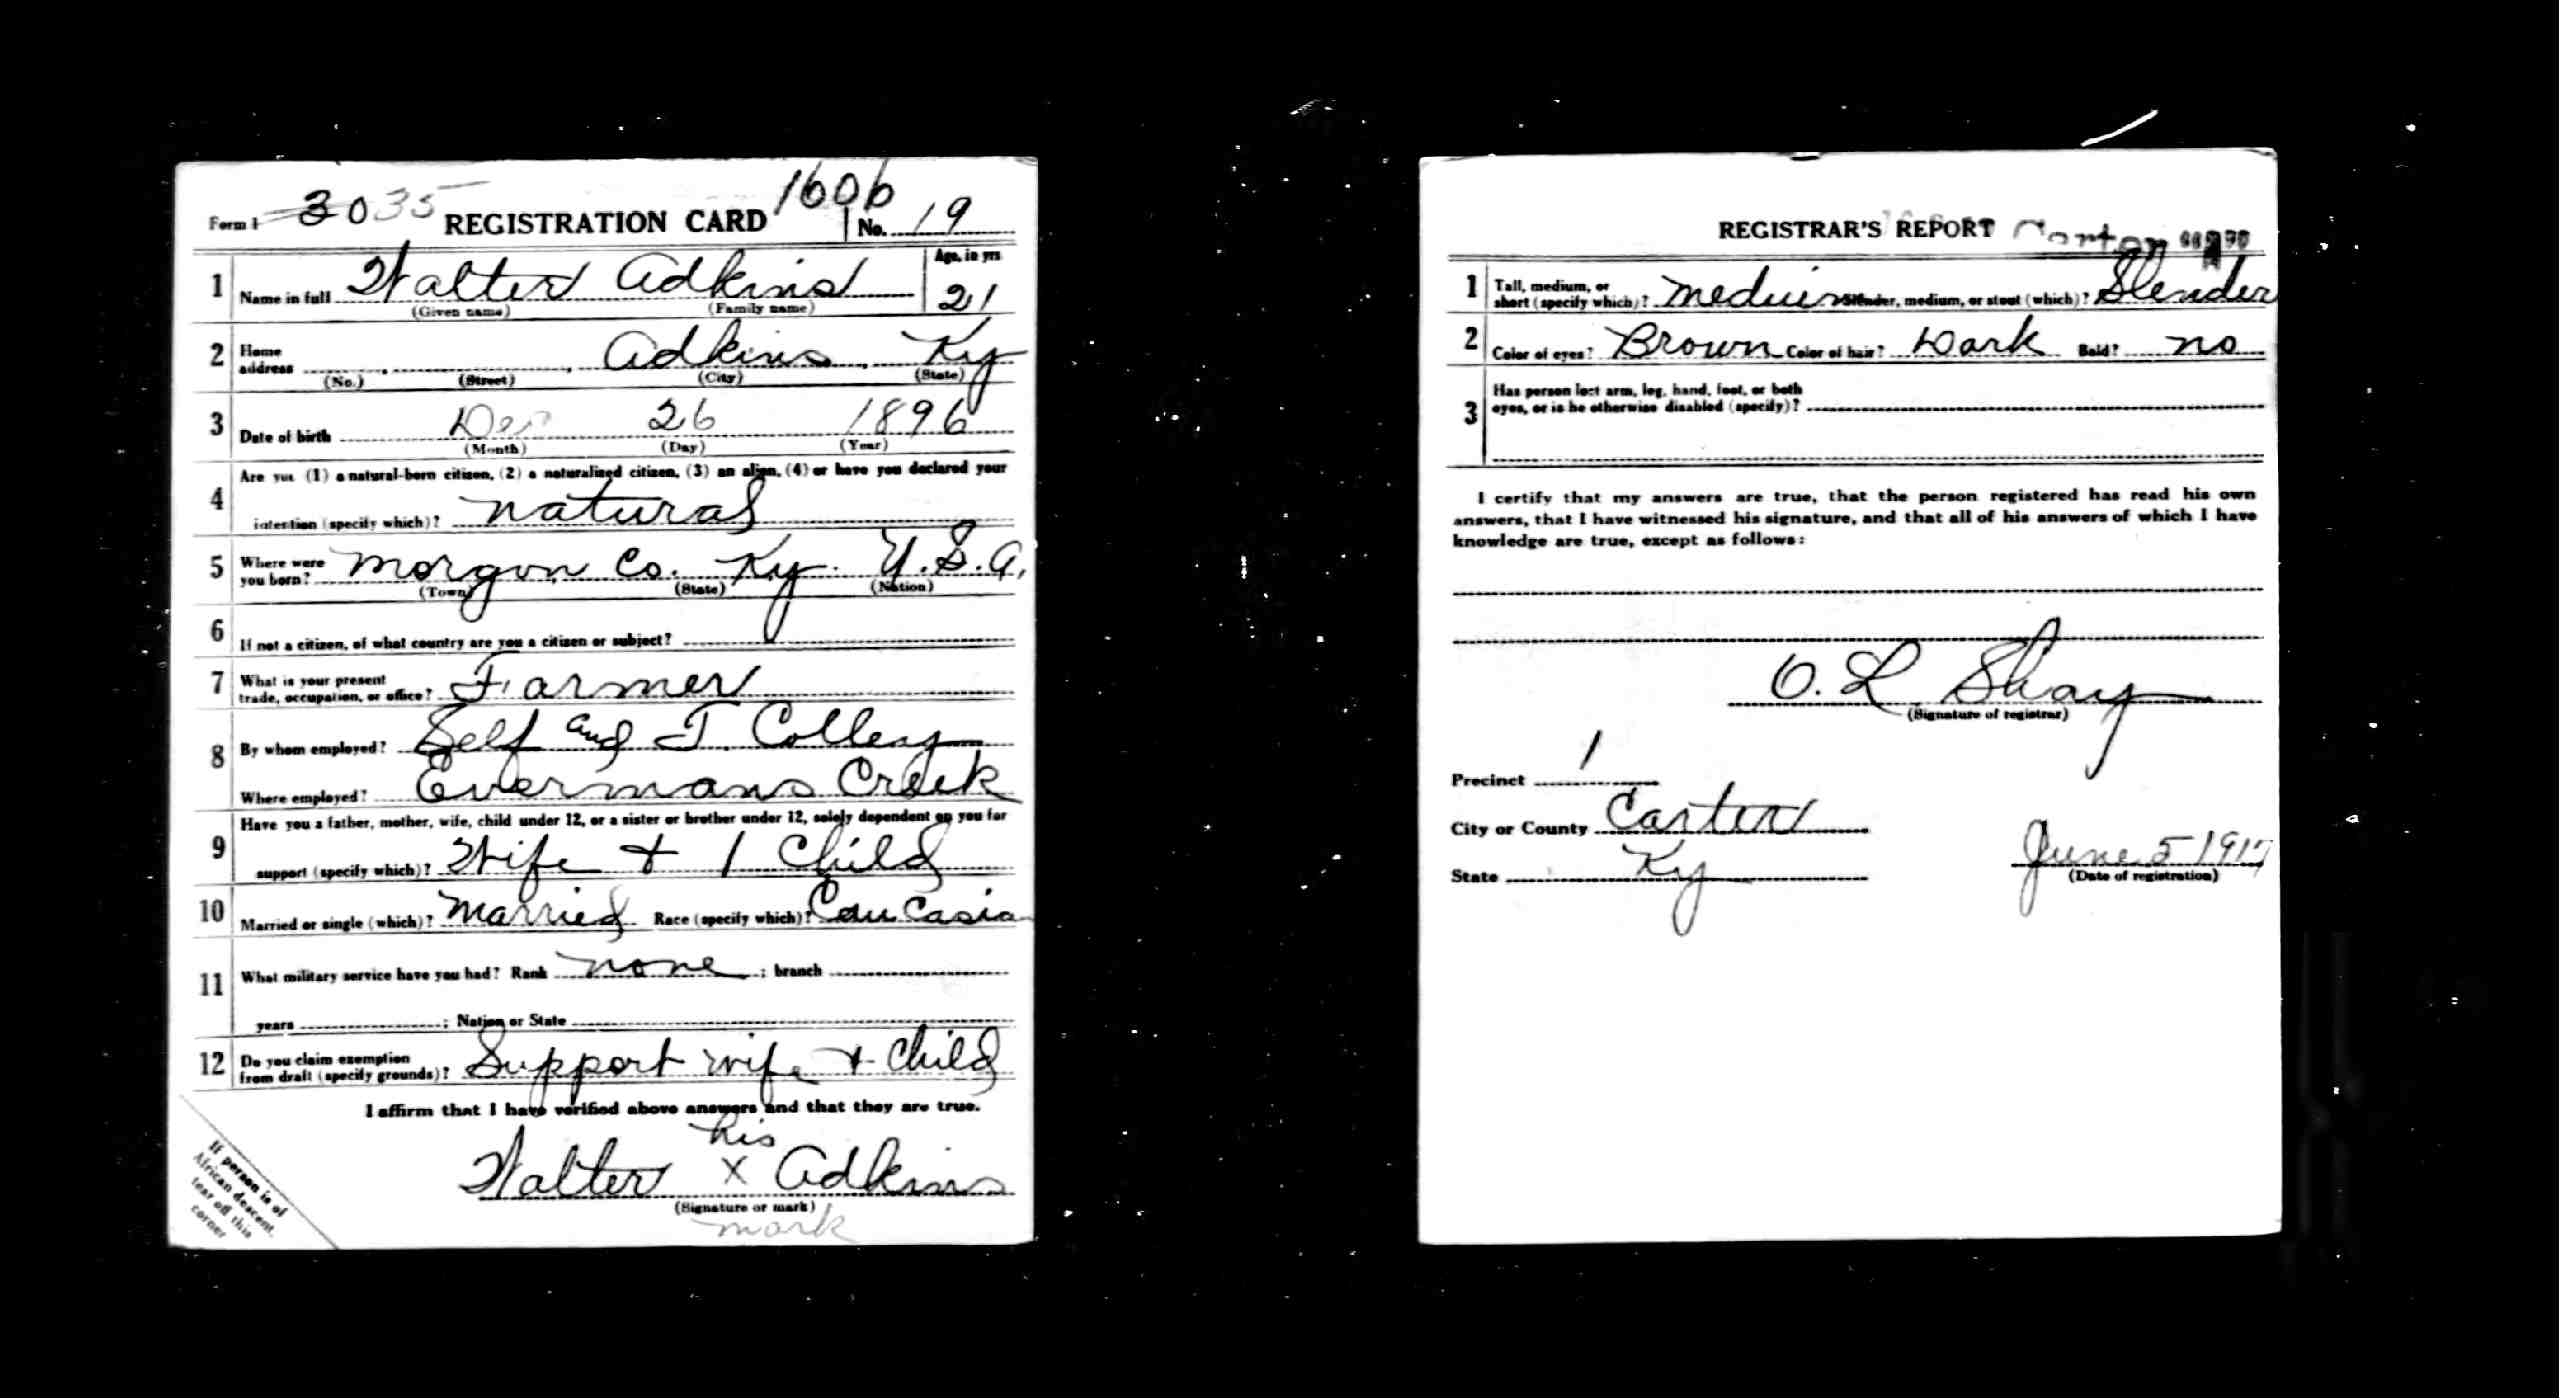 Form 1 3035 REGISTRATION CARD 1606 No. 19
1 Name in full Walter Adkins Age, in yrs 21
(Given name) (Family name)
2 Home address Adkins, Ky
(No.) (Street) (City) (State)
3 Date of birth Dec 26 1896
(Month) (Day) (Year)
4 Are you (1) a natural-born citizen, (2) a naturalized citizen, (3) an alien, (4) or have you declared your
intention (specify which)? natural
5 Where were you born? Morgan Co. Ky. U.S.A.
(Town) (State) (Nation)
6 If not a citizen, of what country are you a citizen or subject?
7 What is your present trade, occupation, or office? Farmer
8 By whom employed? Self and J. Colley
Where employed? Evermans Creek
9 Have you a father, mother, wife, child under 12, or a sister or brother under 12, solely dependent on you for
support (specify which)? Wife + 1 Child
10 Married or single (which)? Married Race (specify which)? Caucasian
11 What military service have you had? Rank none ; branch
years ; Nation or State
12 Do you claim exemption from draft (specify grounds)? Support wife + Child
I affirm that I have verified above answers and that they are true.
his
Walter X Adkins
(Signature or mark)
mark
If person is of
African descent,
tear off this
corner
REGISTRAR'S REPORT
1 Tall, medium, or short (specify which)? medium Slender, medium, or stout (which)? Slender
2 Color of eyes? Brown Color of hair? Dark Bald? no
3 Has person lost arm, leg, hand, foot, or both
eyes, or is he otherwise disabled (specify)?
I certify that my answers are true, that the person registered has read his own
answers, that I have witnessed his signature, and that all of his answers of which I have
knowledge are true, except as follows:
O. L Shay
(Signature of registrar)
Precinct 1
City or County Carter
State Ky
June 5 1917
(Date of registration)